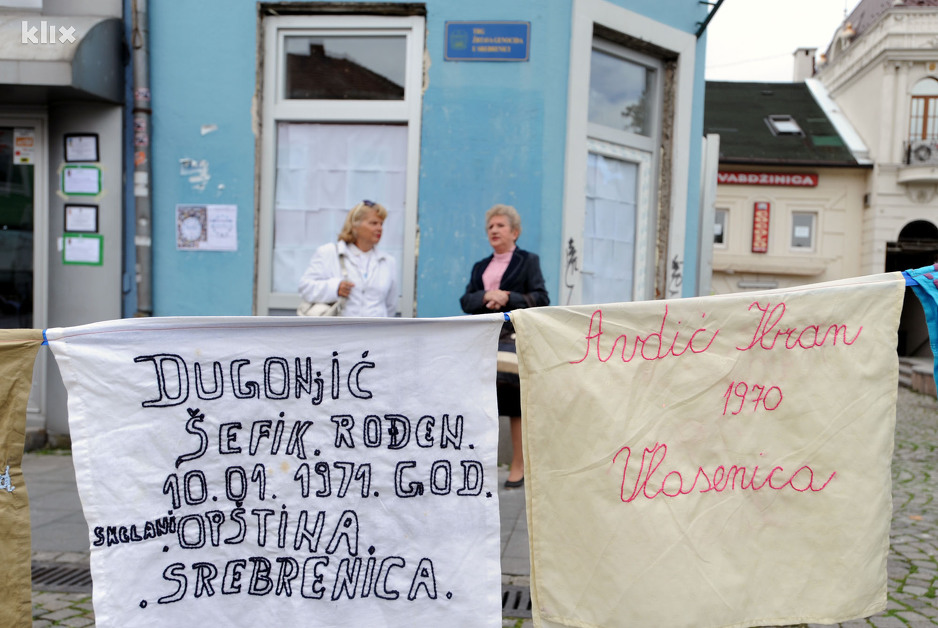 klix
TRG
ŽRTAVA GENOCIDA
U SREBRENICI
VABDŽINICA
DUGONjIĆ
ŠEFIK. ROĐEN.
10.01.1971. GOD.
SKELANI .OPŠTINA.
.SREBRENICA.
Avdić Ibran
1970
Vlasenica